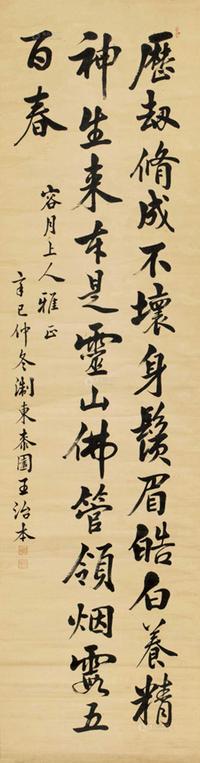 歷劫脩成不壞身鬚眉皓白養精
神生来本是靈山佛管領烟霞五
百春
容月上人雅正
辛巳仲冬浙東桼園王治本